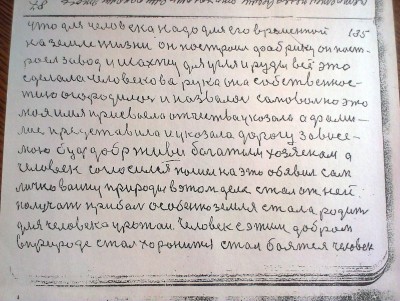 135
что для человека надо для его временной
на земле жизни он построил фабрику он пост-
роел завод и шахту для угля и руды всё это
сделала человекова рука она собственнос-
тию огородилась и назвалась самовольно это
моя имя присвоела отчества указала а фами-
лие представила и указала дорогу зависе-
мою будь добр живи богатым хозяеном а
человек согласился пошел на это объявил сам
личко войну природы в этом деле стал от ней
получать прибыл особенно земля стала родит
для человека урожаи человек с этим добром
в природе стал хоронится стал боятся человек